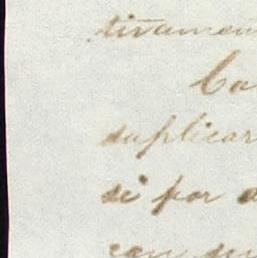 tivamen
Ca
duplicar
se por a